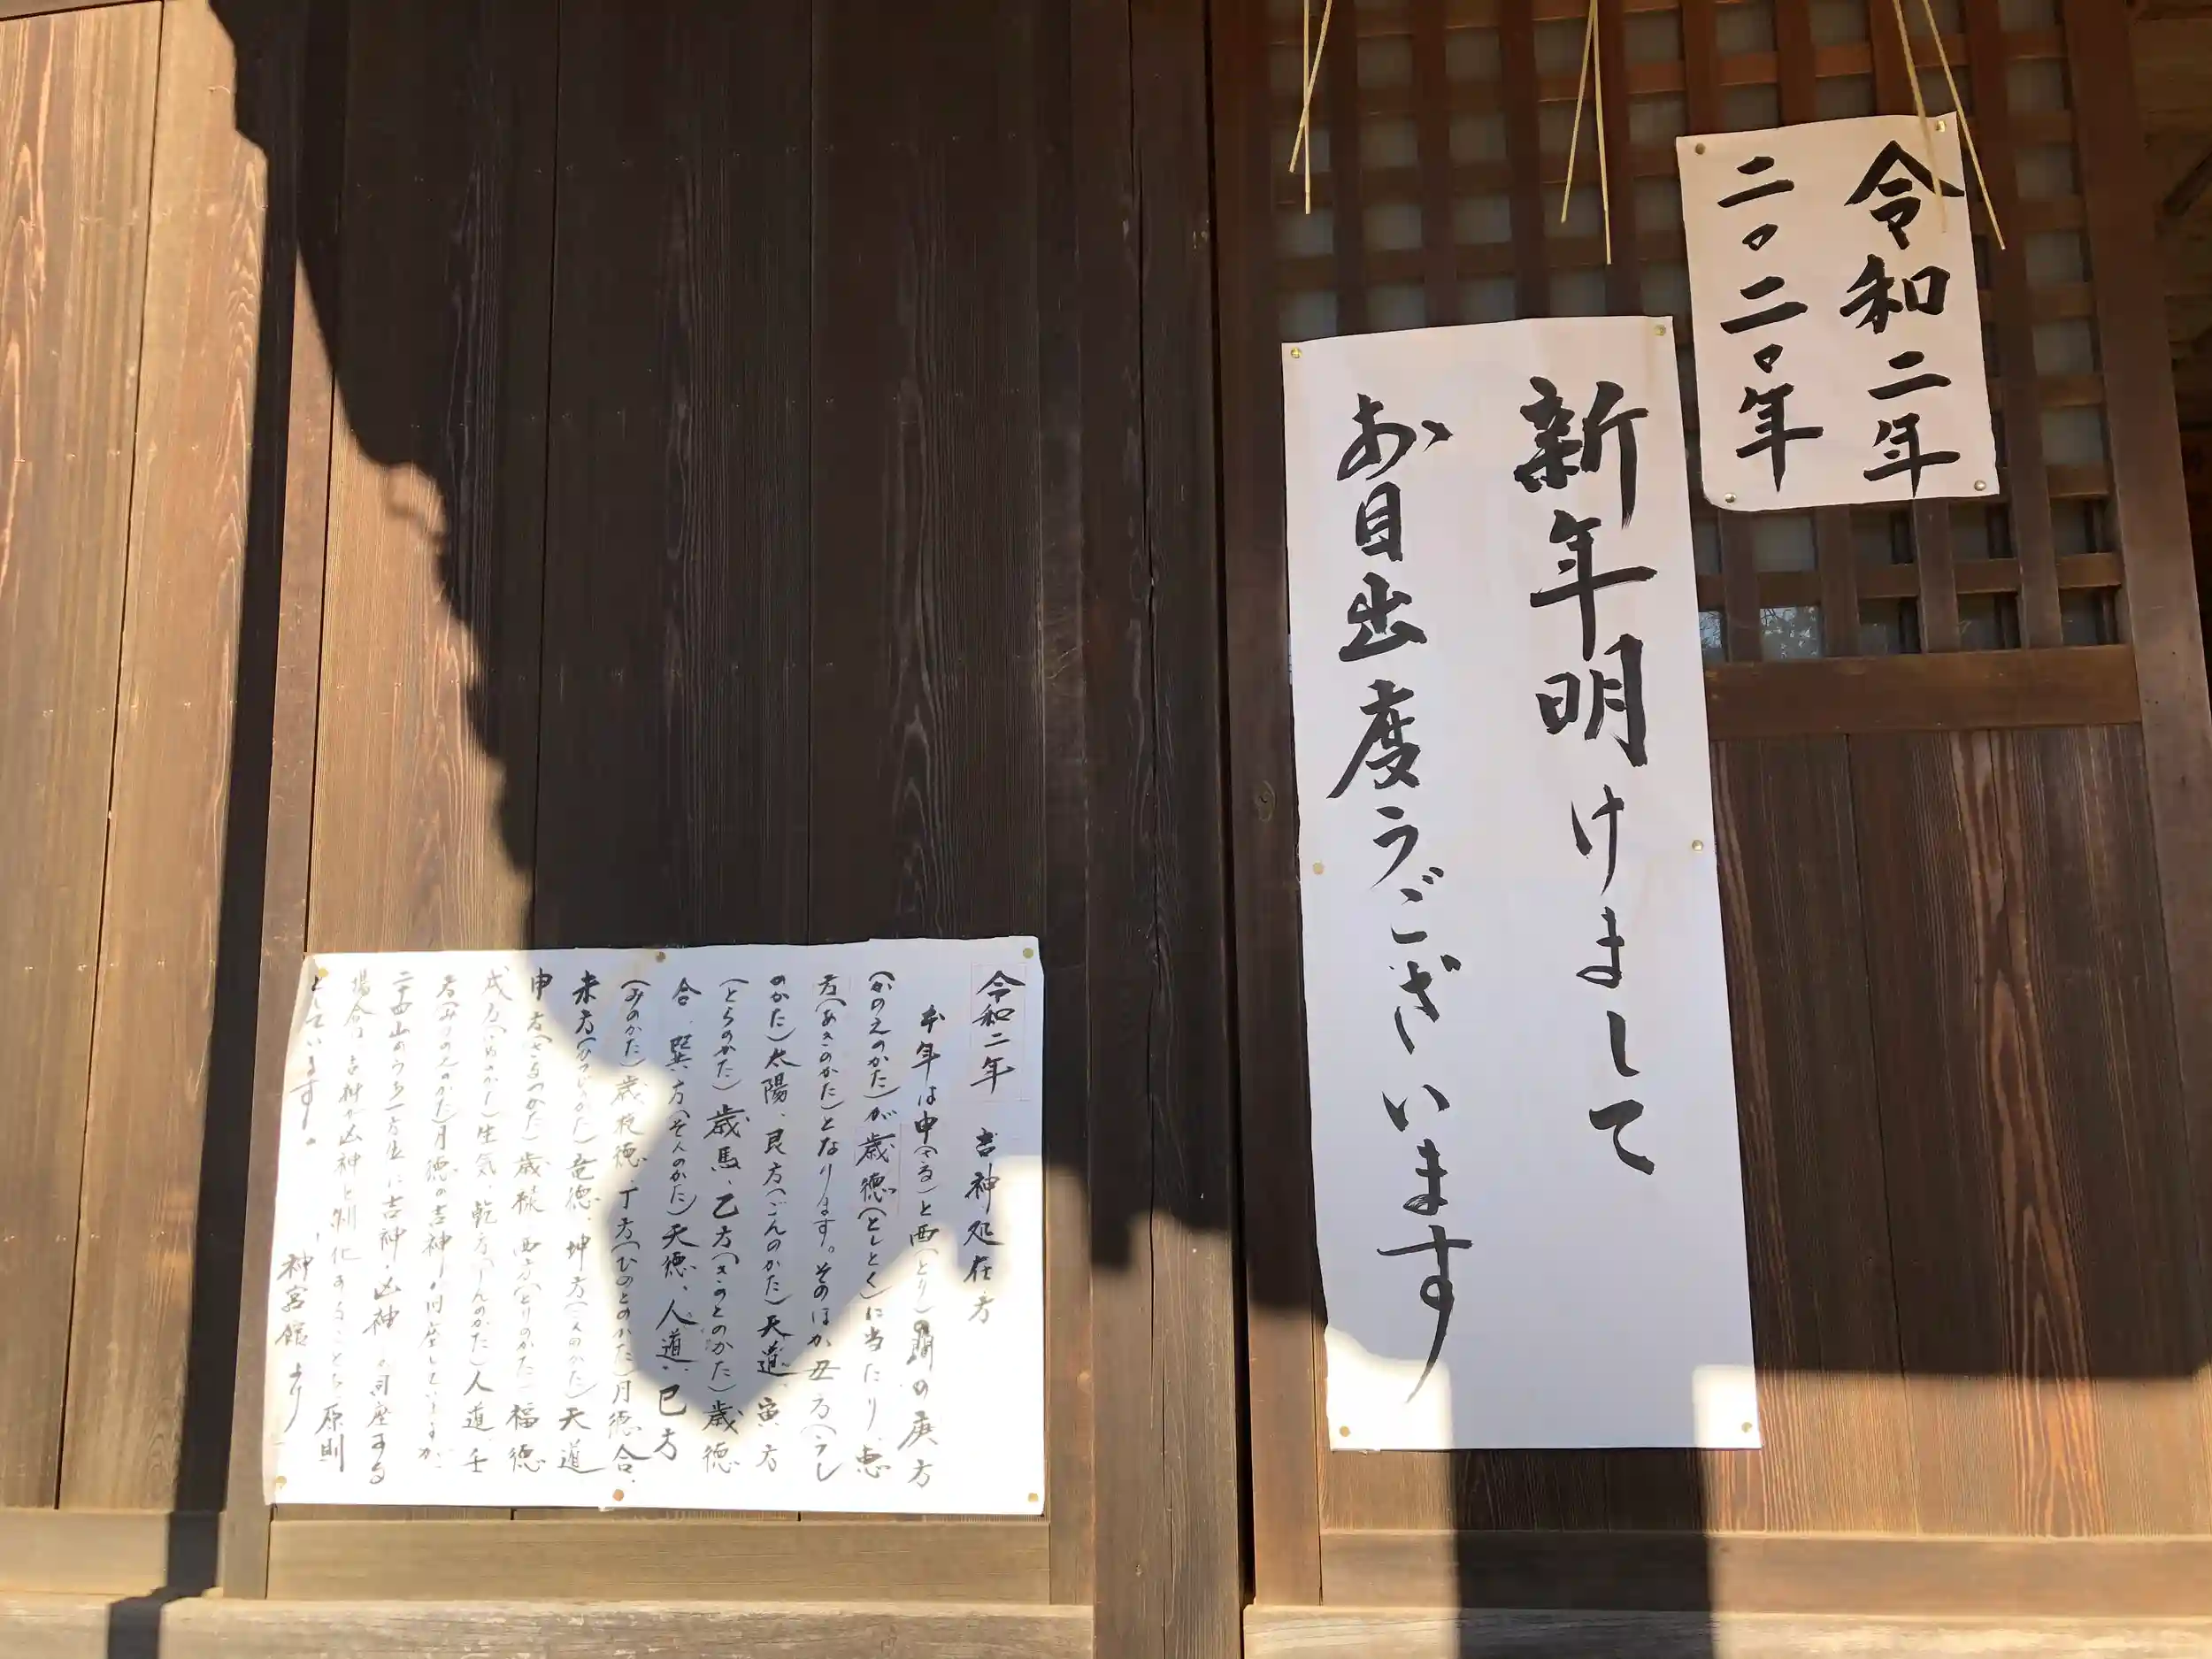 令和二年
二〇二〇年
新年明けまして
お目出度うございます
令和二年 吉神処在方
本年は申(さる)と酉(とり)の間の庚方
(かのえのかた)が歳徳(としとく)に当たり、恵
方(あきのかた)となります。そのほか丑方(うし
のかた)太陽、艮方(ごんのかた)天道、寅方
(とらのかた)歳馬、乙方(きのとのかた)歳徳
合、巽方(そんのかた)天徳、人道、巳方
(みのかた)歳枝徳、丁方(ひのとのかた)月徳合、
未方(ひつじのかた)竜徳、坤方(こんのかた)天道
申方(さるのかた)歳禄、酉方(とりのかた)福徳
戌方(いぬのかた)生気、乾方(けんのかた)人道、壬
方(みずのえのかた)月徳の吉神が回座していますが、
二十四山のうち一方位に吉神・凶神が同座する
場合は吉神が凶神を制化することを原則
としています。
神宮館より